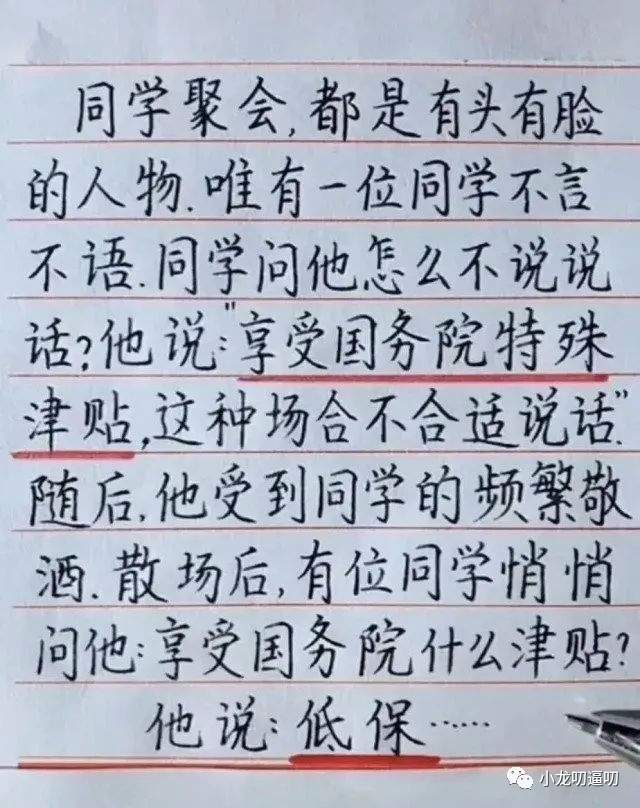 同学聚会,都是有头有脸
的人物.唯有一位同学不言
不语.同学问他怎么不说说
话?他说:"享受国务院特殊
津贴,这种场合不合适说话."
随后,他受到同学的频繁敬
酒.散场后,有位同学悄悄
问他:享受国务院什么津贴?
他说:低保……
小龙叨逼叨